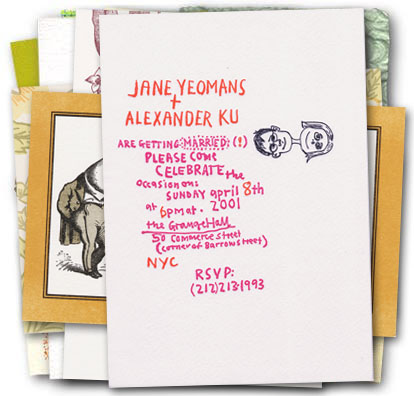 JANE YEOMANS
+
ALEXANDER KU
ARE GETTING MARRIED: (!)
PLEASE COME
CELEBRATE the
occasion on:
SUNDAY april 8th
at 6pm at. 2001
the Grange Hall
50 commerce street
(corner of Barrow street)
NYC
RSVP:
(212)213-1993